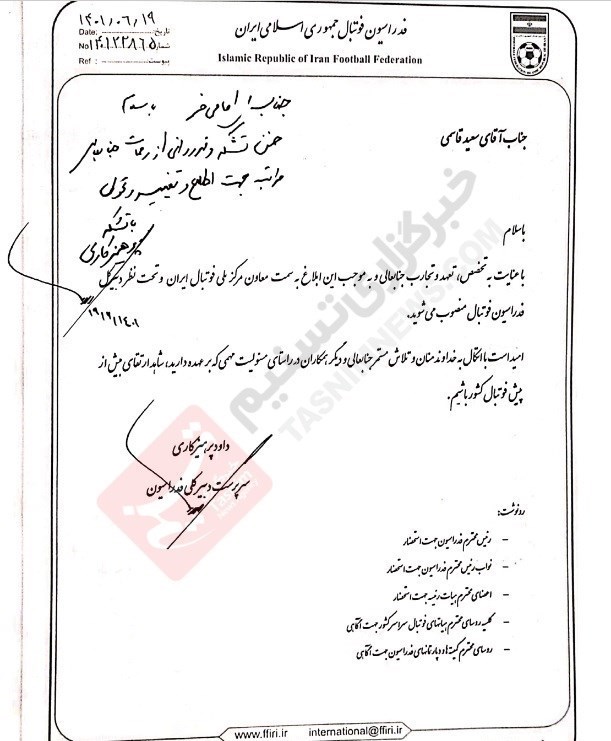 فدراسیون فوتبال جمهوری اسلامی ایران
Islamic Republic of Iran Football Federation
تاریخ: ۱۴۰۱/۰۶/۱۹
Date:
شماره ۱۴۰۱۲۲۸۶۵
No
پیوست:
Ref :
جناب با سلام
ضمن تشکر و قدردانی از زحمات
مراتب جهت اطلاع و
با تشکر
پرهیزکاری
جناب آقای سعید قاسمی
باسلام
باعنایت به تخصص، تعهد و تجارب جنابعالی و به موجب این ابلاغ به سمت معاون مرکز ملی فوتبال ایران و تحت نظر دبیرکل
فدراسیون فوتبال منصوب می شوید.
امید است با اتکال به خداوند منان و تلاش مستمر جنابعالی و دیگر همکاران در راستای مسئولیت مهمی که بر عهده دارید، شاهد ارتقای بیش از
پیش فوتبال کشور باشیم.
داود پرهیزکاری
سرپرست دبیرکلی فدراسیون
رونوشت:
- رئیس محترم فدراسیون جهت استحضار
- نواب رئیس محترم فدراسیون جهت استحضار
- اعضای محترم هیات رئیسه جهت استحضار
- کلیه روسای محترم هیاتهای فوتبال سراسر کشور جهت آگاهی
- روسای محترم کمیته ها و دپارتمانهای فدراسیون جهت آگاهی
www.ffiri.ir international@ffiri.ir
خبرگزاری تسنیم
TASNIMNEWS.COM